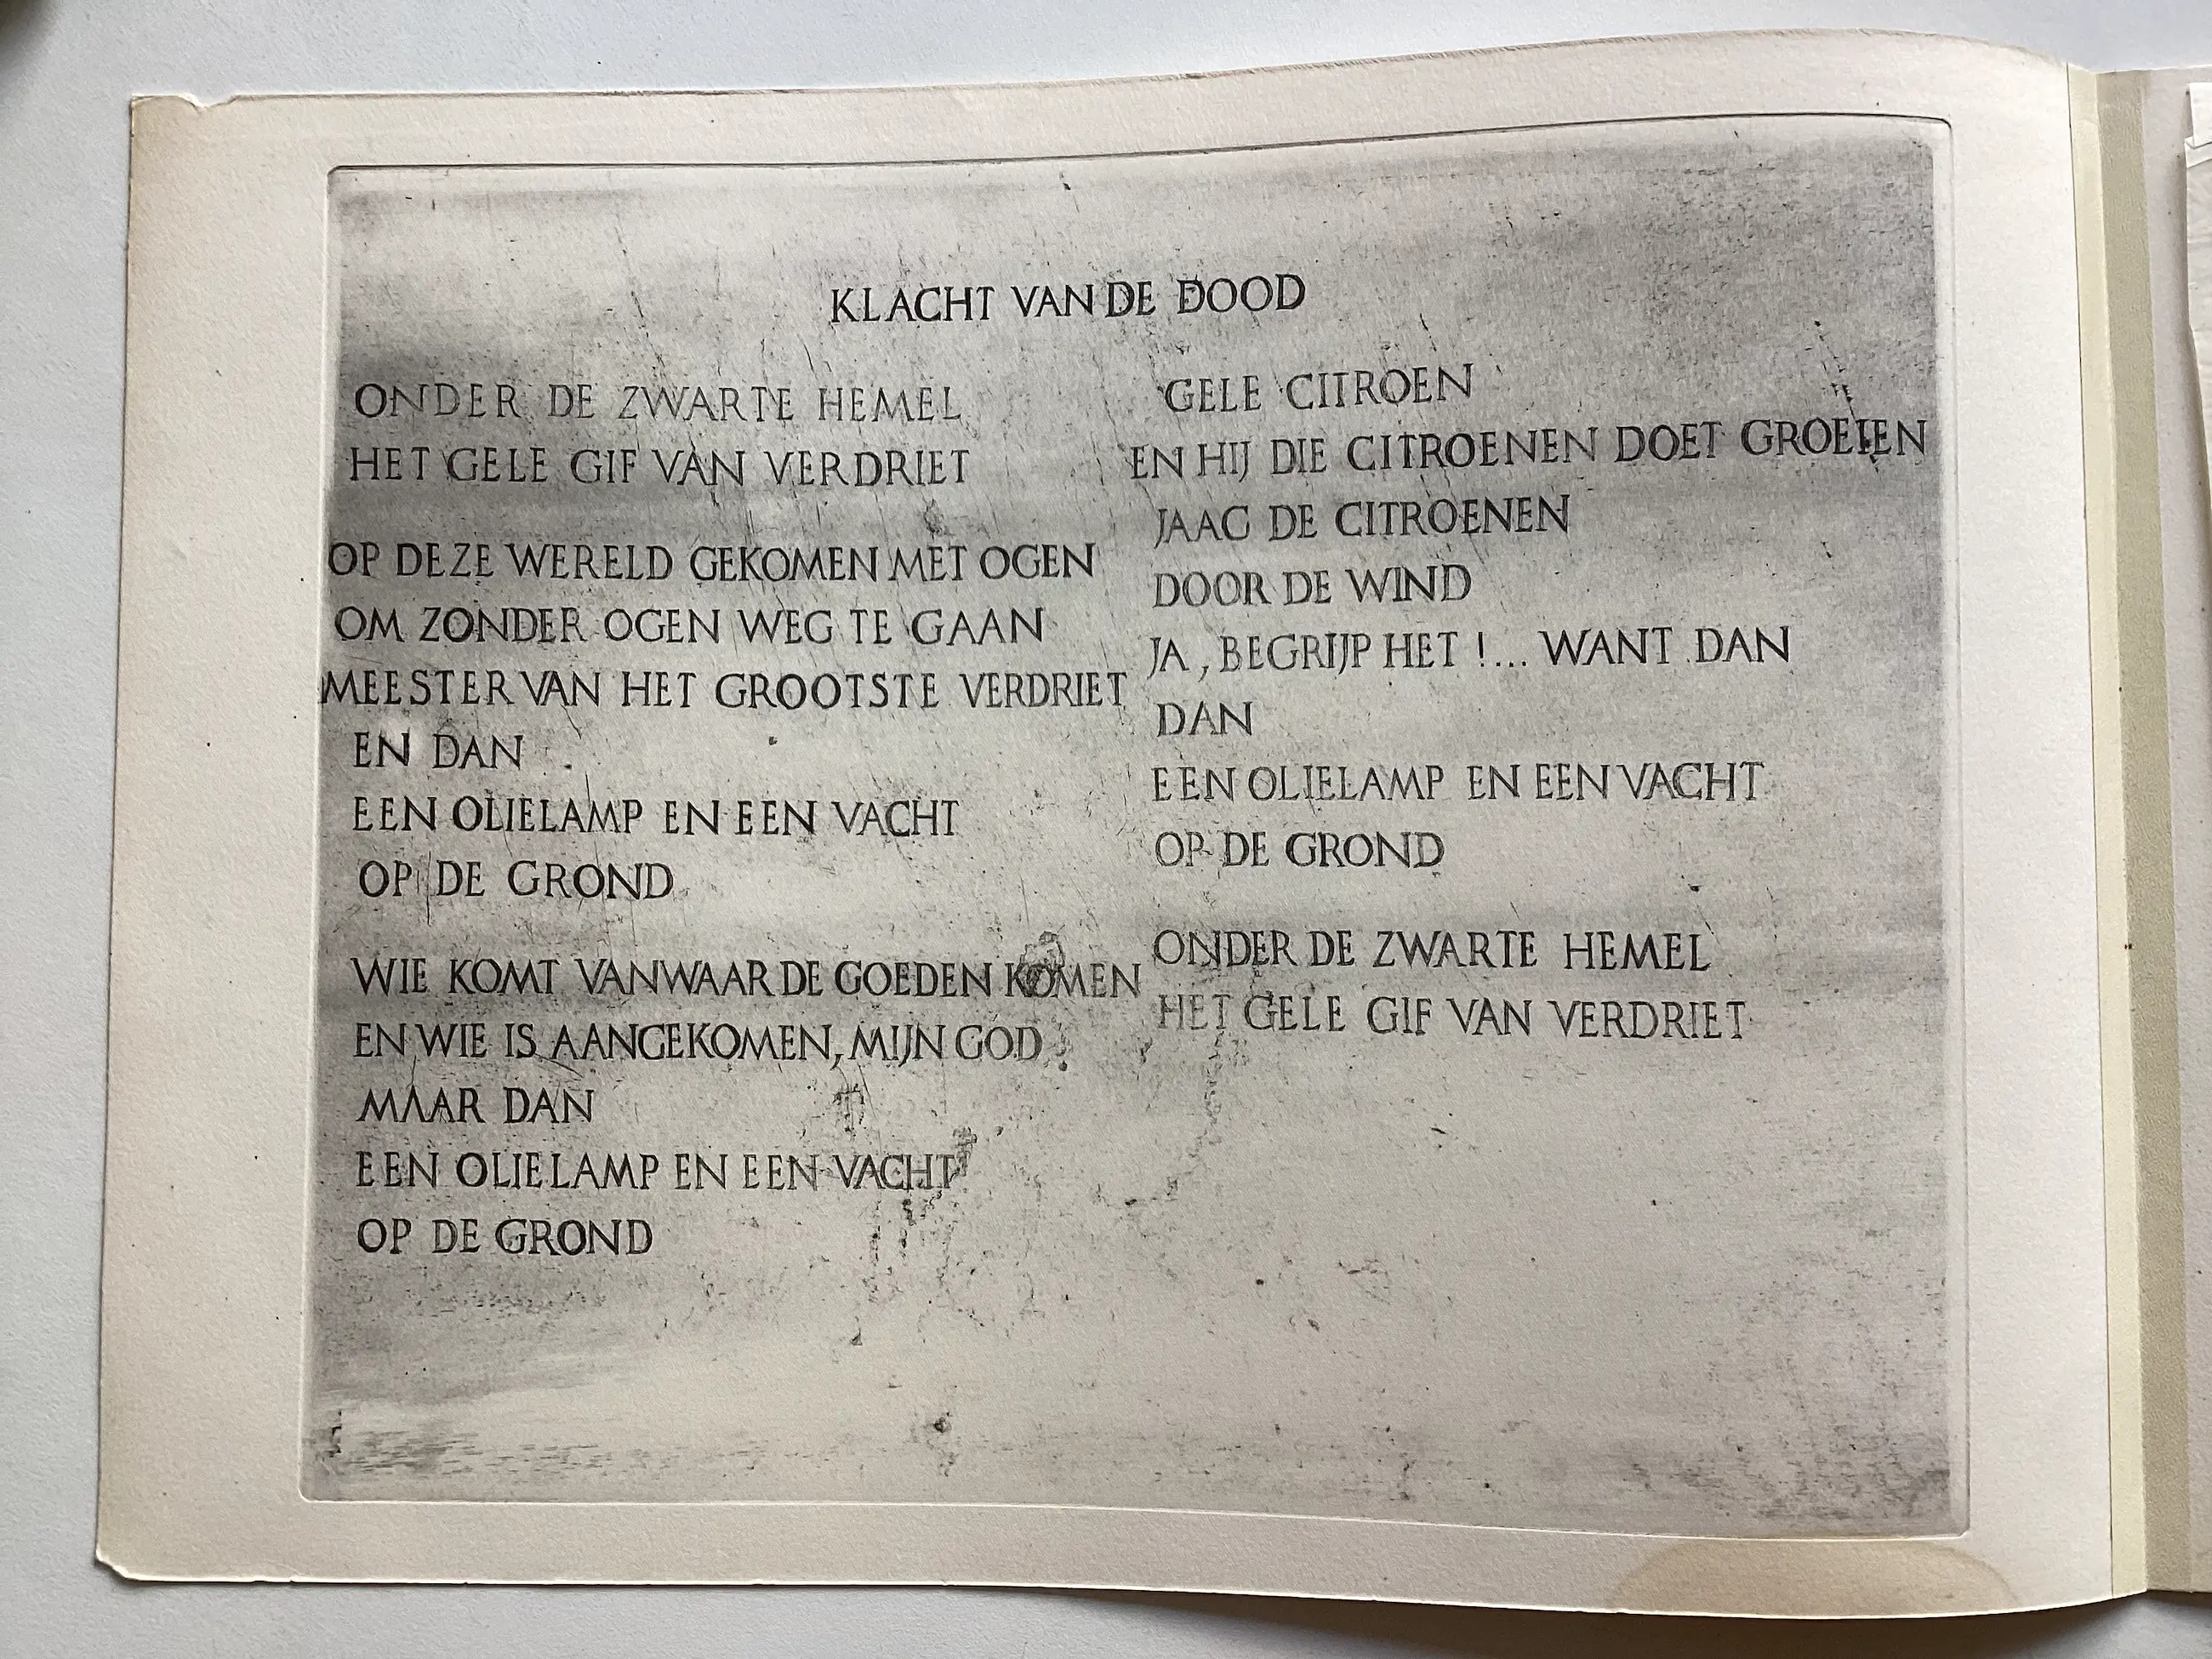 KLACHT VAN DE DOOD
ONDER DE ZWARTE HEMEL
HET GELE GIF VAN VERDRIET
OP DEZE WERELD GEKOMEN MET OGEN
OM ZONDER OGEN WEG TE GAAN
MEESTER VAN HET GROOTSTE VERDRIET
EN DAN
EEN OLIELAMP EN EEN VACHT
OP DE GROND
WIE KOMT VANWAAR DE GOEDEN KOMEN
EN WIE IS AANGEKOMEN, MIJN GOD
MAAR DAN
EEN OLIELAMP EN EEN VACHT
OP DE GROND
GELE CITROEN
EN HIJ DIE CITROENEN DOET GROEIEN
JAAG DE CITROENEN
DOOR DE WIND
JA, BEGRIJP HET !... WANT DAN
DAN
EEN OLIELAMP EN EEN VACHT
OP DE GROND
ONDER DE ZWARTE HEMEL
HET GELE GIF VAN VERDRIET